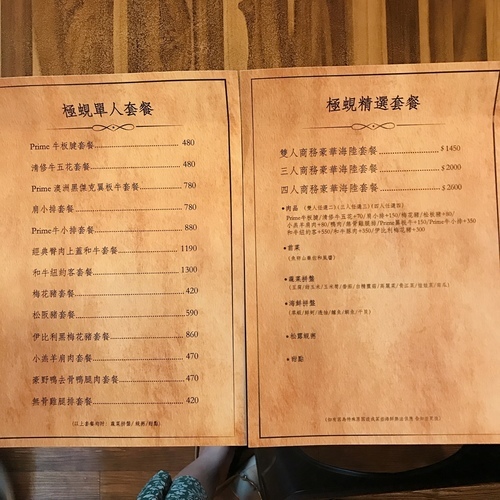 極蜆單人套餐
Prime 牛板腱套餐 480
清修牛五花套餐 480
Prime 澳洲黑傑克翼板牛套餐 780
肩小排套餐 780
Prime牛小排套餐 880
經典臀肉上蓋和牛套餐 1190
和牛紐約客套餐 1300
梅花豬套餐 420
松阪豬套餐 590
伊比利黑梅花豬套餐 860
小羔羊肩肉套餐 470
豪野鴨去骨鴨腿肉套餐 470
無骨雞腿排套餐 420
(以上套餐附附: 蔬菜拼盤/ 甜點)
極蜆精選套餐
雙人商務豪華海陸套餐 $1450
三人商務豪華海陸套餐 $2000
四人商務豪華海陸套餐 $2600
•肉品 (雙人任選二)(三人任選三)(四人任選四)
Prime牛板腱/清修牛五花+70/肩小排+150/梅花豬/松阪豬+80/
小羔羊肩肉+80/鴨肉/無骨雞腿排/Prime翼板牛+150/Prime牛小排+350
和牛紐約客+550/和牛臀肉+350/伊比利梅花豬+300
•前菜
•蔬菜拼盤
•海鮮拼盤
•甜點